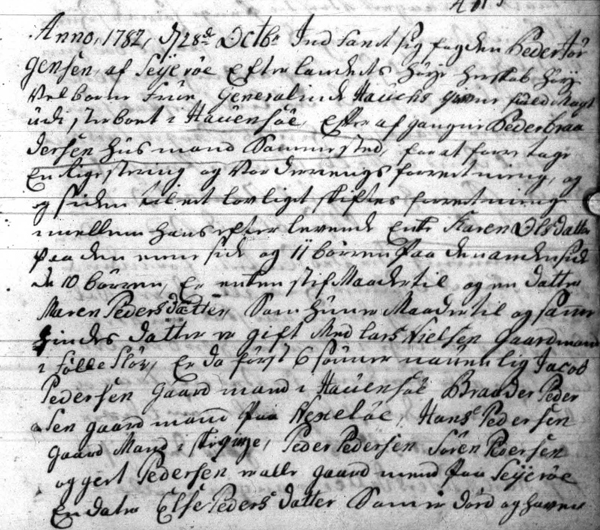 Anno, 1782, d 28de Octbr Indfandt sig fogden Peder Jör
gensen, af Seÿeröe Efter landets höje herskab höÿ
Velbaarne Frue Generalinde Hauchs gunne fuldmagt
udi sterboet i Hauensöe, Efter afgangne Peder braa
dersen Huusmand Sammested, for at foretage
En Rigestrering og Vorderengs forretning, og
og siden til et lovligt skiftes forretning
imellem hans efterlevende Enke Karen Olsdatter
paa den eene side og 11 börren paa den anden side
de 10 börren, Er enten stif Maader til og en datter
Maren Pedersdatter Som hun er Maader til og samme
hindes datter er gift Med Lars Nielsen gaardmand
i Sölle Slör, Er da först 6 sönner nannlig Jacob
Pedersen Gaard mand i Hauensöe Braader Peder
sen gaard mand paa Nexelöe, Hans Pedersen
gaard Mand i Peder Pedersen Sören Pedersen
og gert Pedersen er alle gaard mend paa Seÿeröe
En dater Else Peders datter Som er död og haver